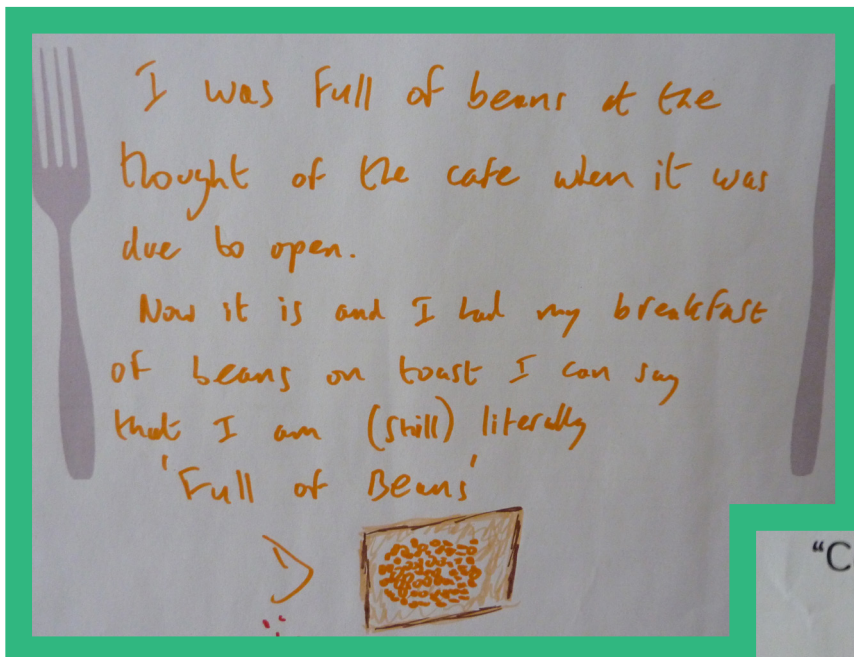 I was Full of beans at the
thought of the cafe when it was
due to open.
Now it is and I had my breakfast
of beans on toast I can say
that I am (still) literally
'Full of Beans'
"C